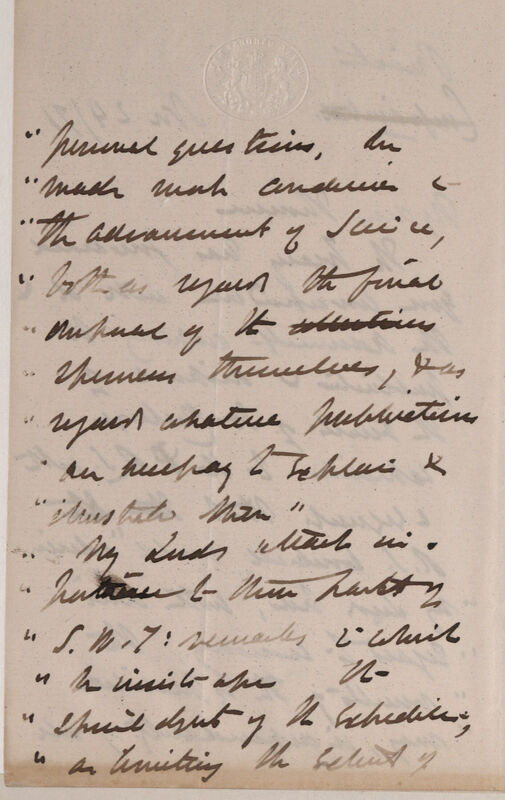 " personal questions, the
" made most conducive to
" the advancement of Science,
" both as regards the final
" disposal of the collections
" specimens themselves, & as
" regards whatever publications
" are necessary to explain &
" illustrate them"
" My Lords attach
" to those parts of
" S. W. T: remarks in which
" he insists upon the
" special object of the Expedition,
" on limiting the extent of